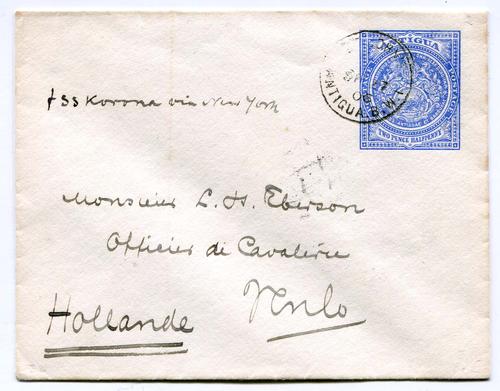 ANTIGUA
POSTAGE
TWO PENCE HALFPENNY
ANTIGUA. B.W.I.
06
pSS Korona via New York
Monsieur L. H. Eberson
Officier de Cavalerie
Venlo
Hollande